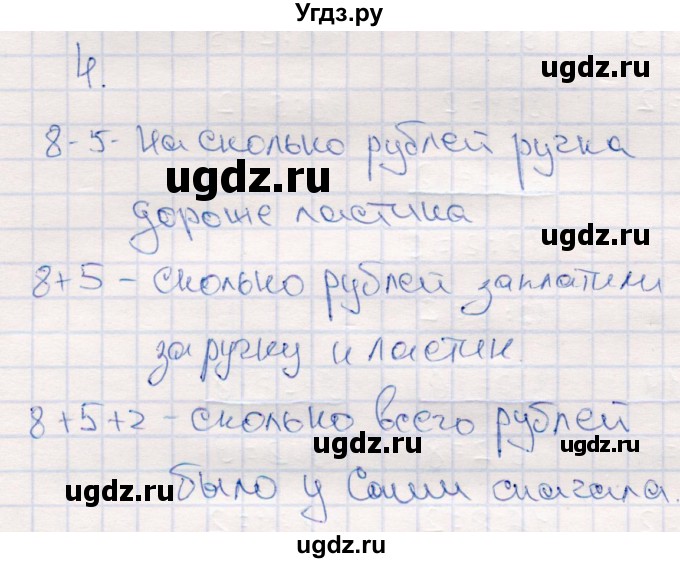 Угдз.ру
ugdz.ru
4.
8-5- На сколько рублей ручка
ugdz.ru
дороже ластика
ugdz.ru
8+5 - сколько рублей заплатили
ugdz.ru
за ручку и ластик.
8+5+2 - сколько всего рублей
ugdz.ru
было у Саши сначала.
ugdz.ru
ugdz.ru